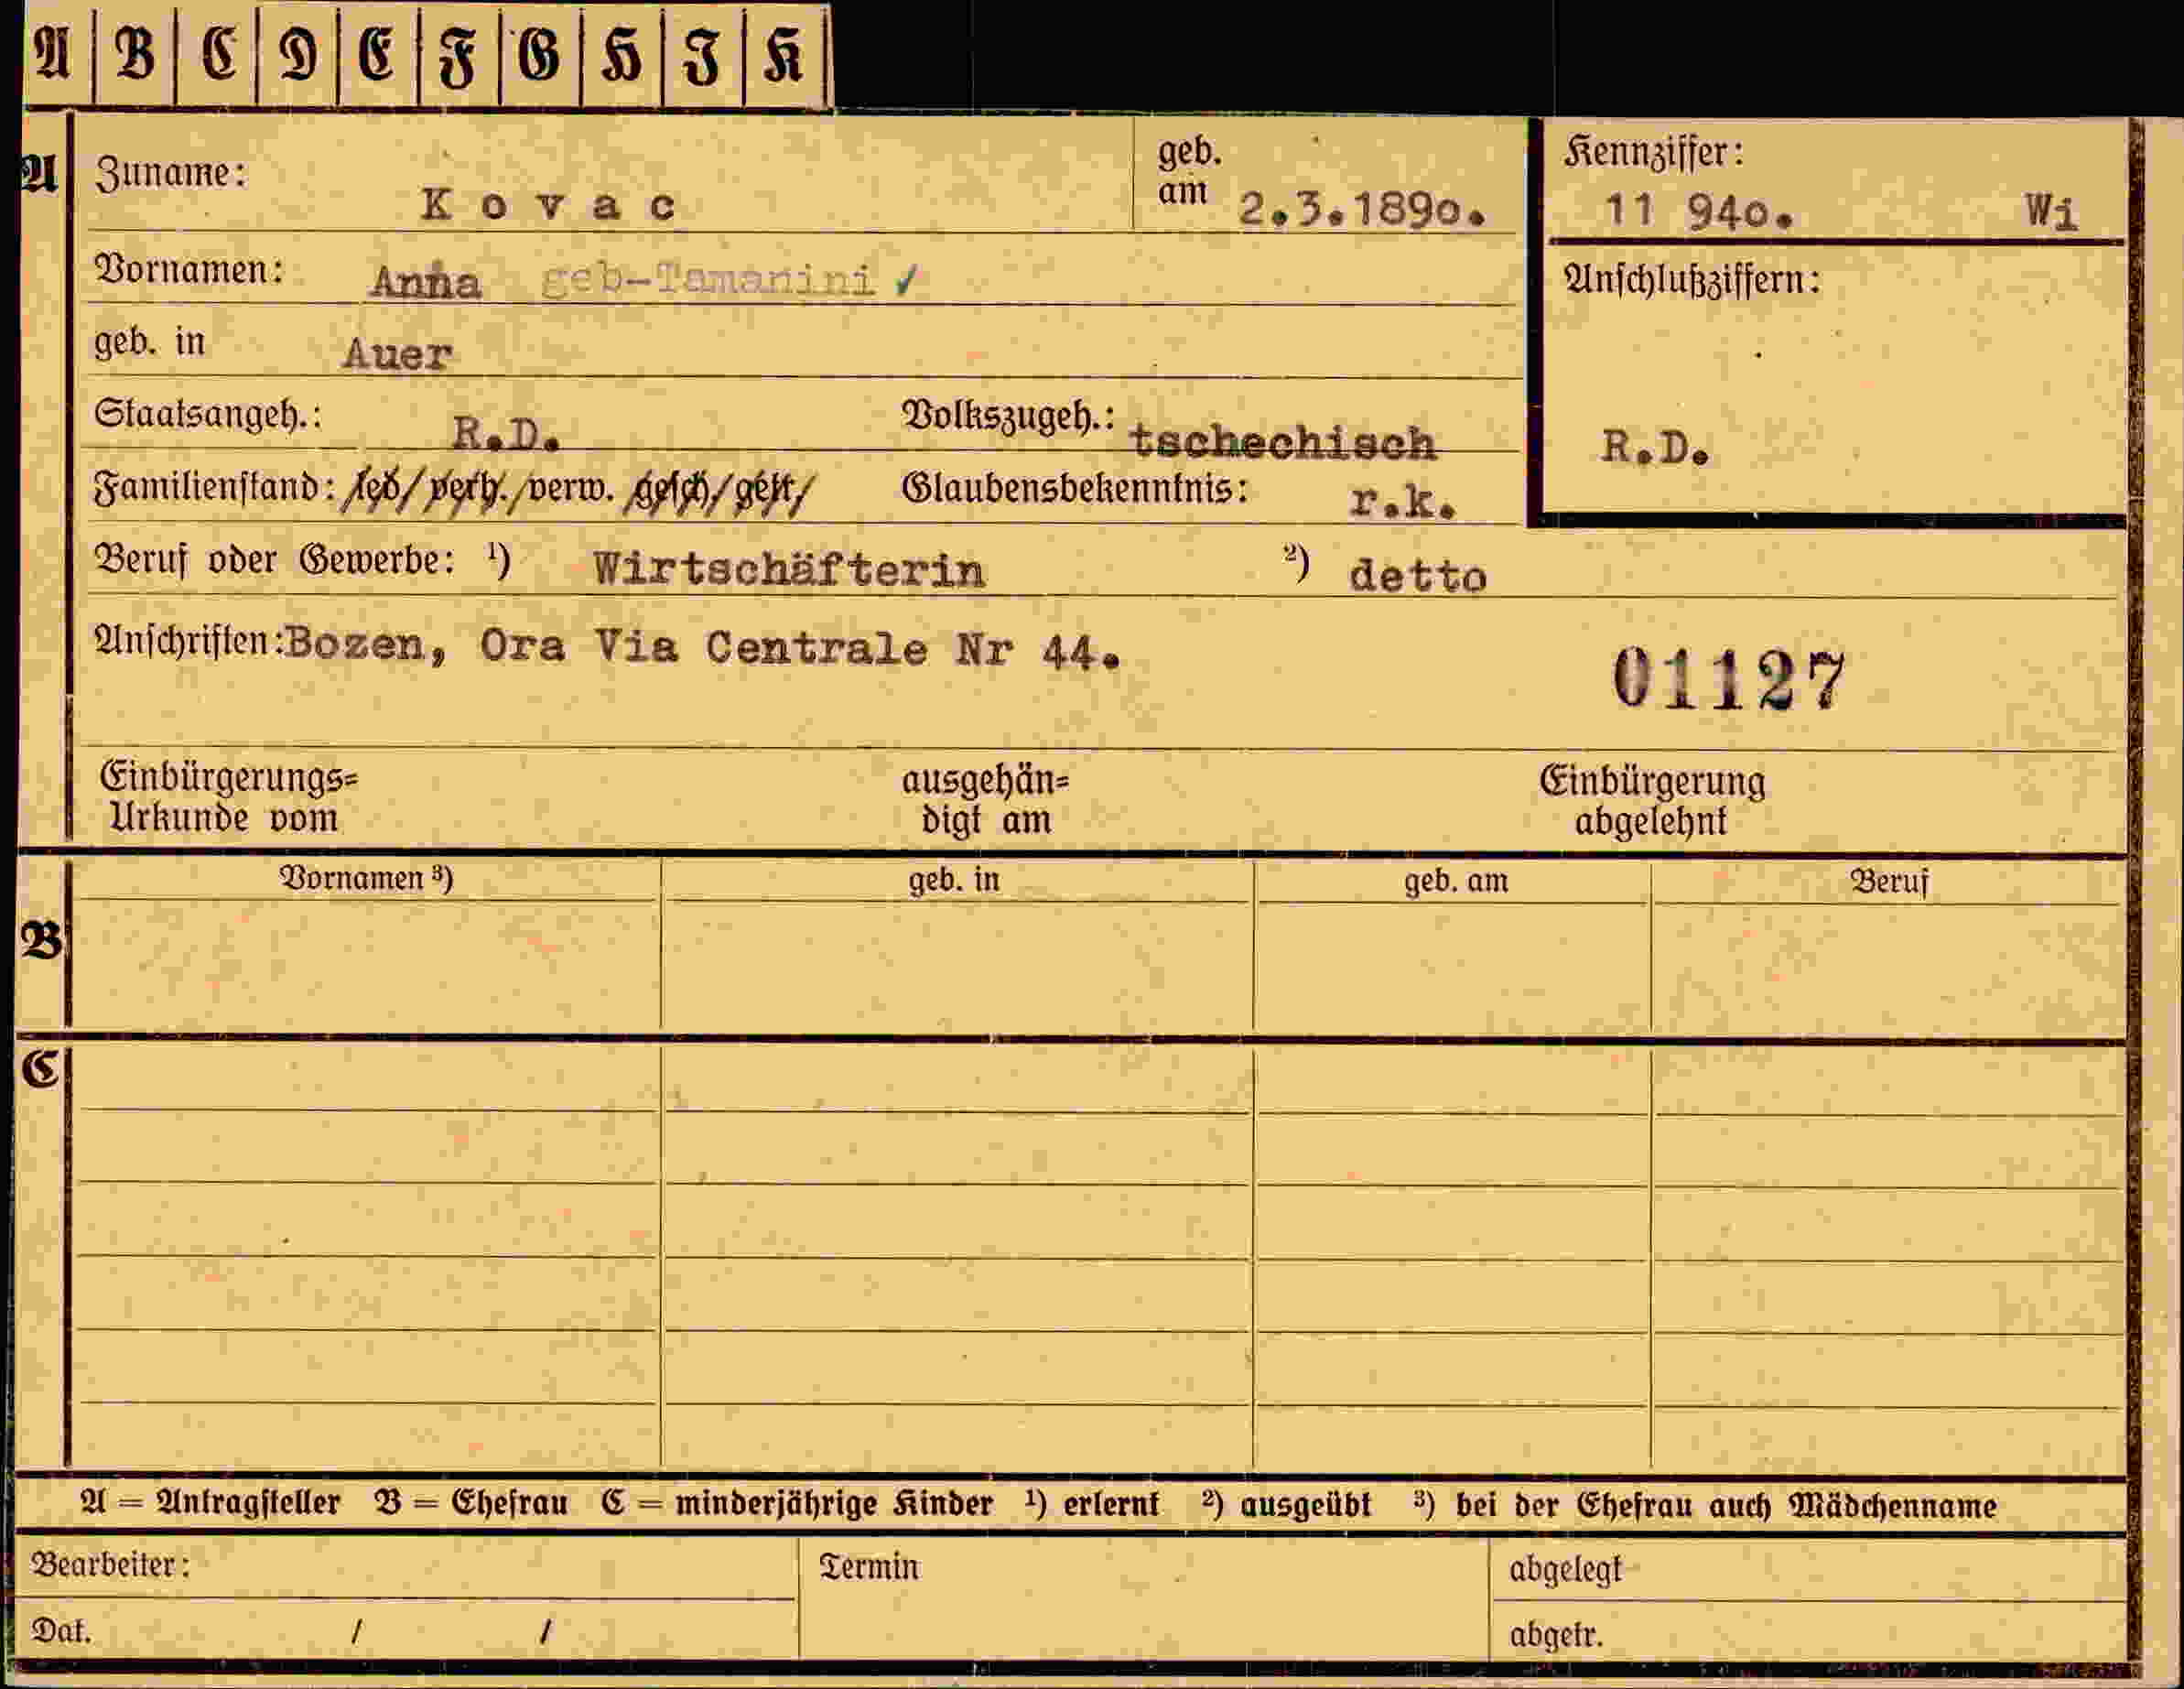 A B C D E F G H I K
A Zuname: Kovac geb. am 2.3.1890. Kennziffer: 11 940. Wi
Vornamen: Anna geb-Tamanini ✓ Anschlußziffern:
geb. in Auer
Staatsangeh.: R.D. Volkszugeh.: tschechisch R.D.
Familienstand: led/verh./verw. gesch/getr/ Glaubensbekenntnis: r.k.
Beruf oder Gewerbe: ¹) Wirtschäfterin ²) detto
Anschriften: Bozen, Ora Via Centrale Nr 44.
01127
Einbürgerungs= ausgehän= Einbürgerung
Urkunde vom digt am abgelehnt
Vornamen ³) geb. in geb. am Beruf
B
C
A = Antragsteller B = Ehefrau C = minderjährige Kinder ¹) erlernt ²) ausgeübt ³) bei der Ehefrau auch Mädchenname
Bearbeiter: Termin abgelegt
Dat. / / abgetr.